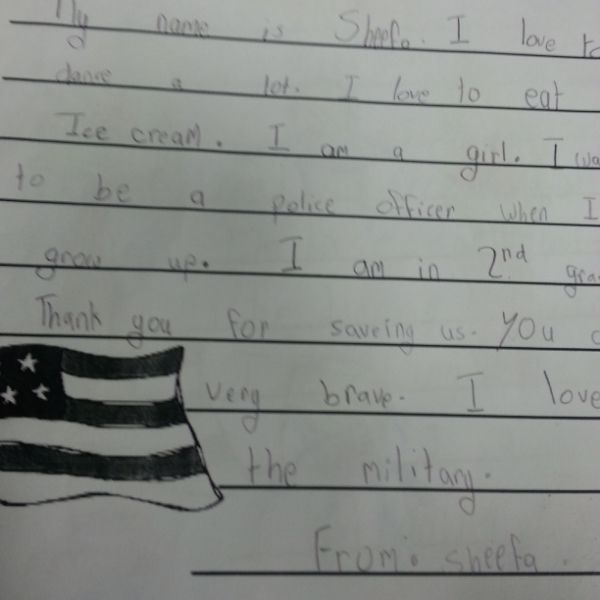 My name is Sheefa. I love to
dance a lot. I love to eat
Ice cream. I am a girl. I wa
to be a police officer when I
grow up. I am in 2nd gra
Thank you for saveing us. YOU a
very brave. I love
the military.
From: sheefa.